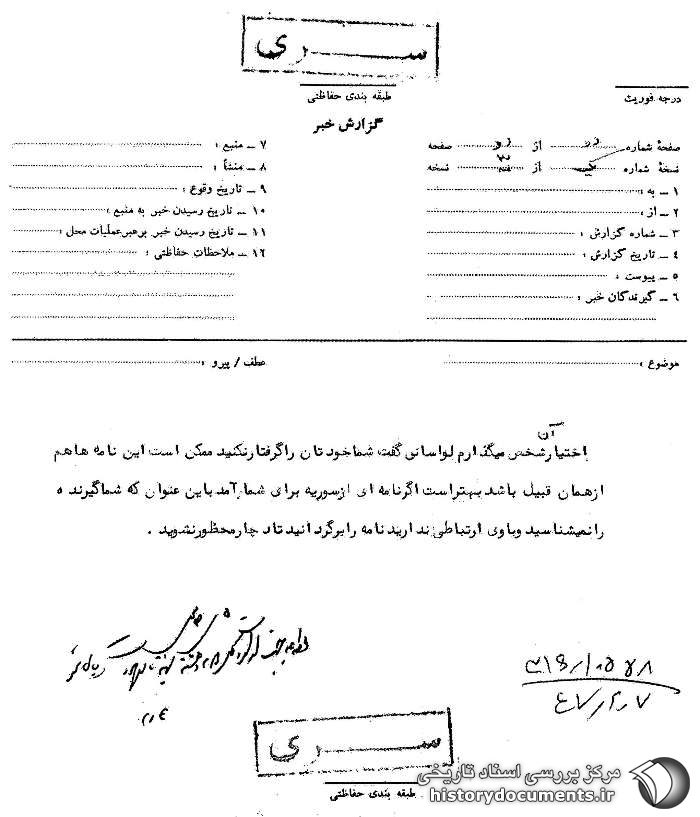 سری
طبقه بندی حفاظتی
درجه فوریت
گزارش خبر
صفحهٔ شماره دو از دو صفحه
نسخهٔ شماره از ۳ نسخه
۱ ــ به :
۲ ــ از :
۳ ــ شماره گزارش :
۴ ــ تاریخ گزارش :
۵ ــ پیوست :
۶ ــ گیرندگان خبر :
۷ ــ منبع :
۸ ــ منشأ :
۹ ــ تاریخ وقوع :
۱۰ ــ تاریخ رسیدن خبر به منبع :
۱۱ ــ تاریخ رسیدن خبر برهبر عملیات محل :
۱۲ ــ ملاحظات حفاظتی :
موضوع :
عطف / پیرو :
آن
اختیار شخص میگذارم لواسانی گفت شما خودتان را گرفتار نکنید ممکن است این نامه ها هم
از همان قبیل باشد بهتر است اگر نامه ای از سوریه برای شما آمد باین عنوان که شما گیرنده
را نمیشناسید و باوی ارتباطی ندارید نامه را برگردانید تا دچار محظور نشوید .
سری
طبقه بندی حفاظتی
مرکز بررسی اسناد تاریخی
historydocuments.ir